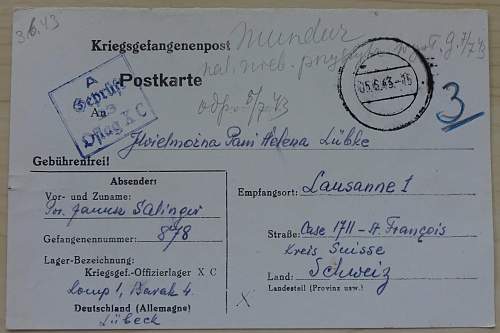 3.6.43
Kriegsgefangenenpost
Mundur
Postkarte
A
Geprüft
Oflag X C
05.6.43.-15
3
An
Pani Helena Lübke
Gebührenfrei!
Absender:
Vor- und Zuname:
Por. Janusz Salinger
Gefangenennummer: 878
Lager-Bezeichnung:
Kriegsgef.-Offizierlager X C
Lomp 1, Barak 4.
Deutschland (Allemagne)
Lübeck
Empfangsort: Lausanne 1
Straße: Case 1711 - St. François
Kreis Suisse
Land: Schweiz
Landesteil (Provinz usw.)
X